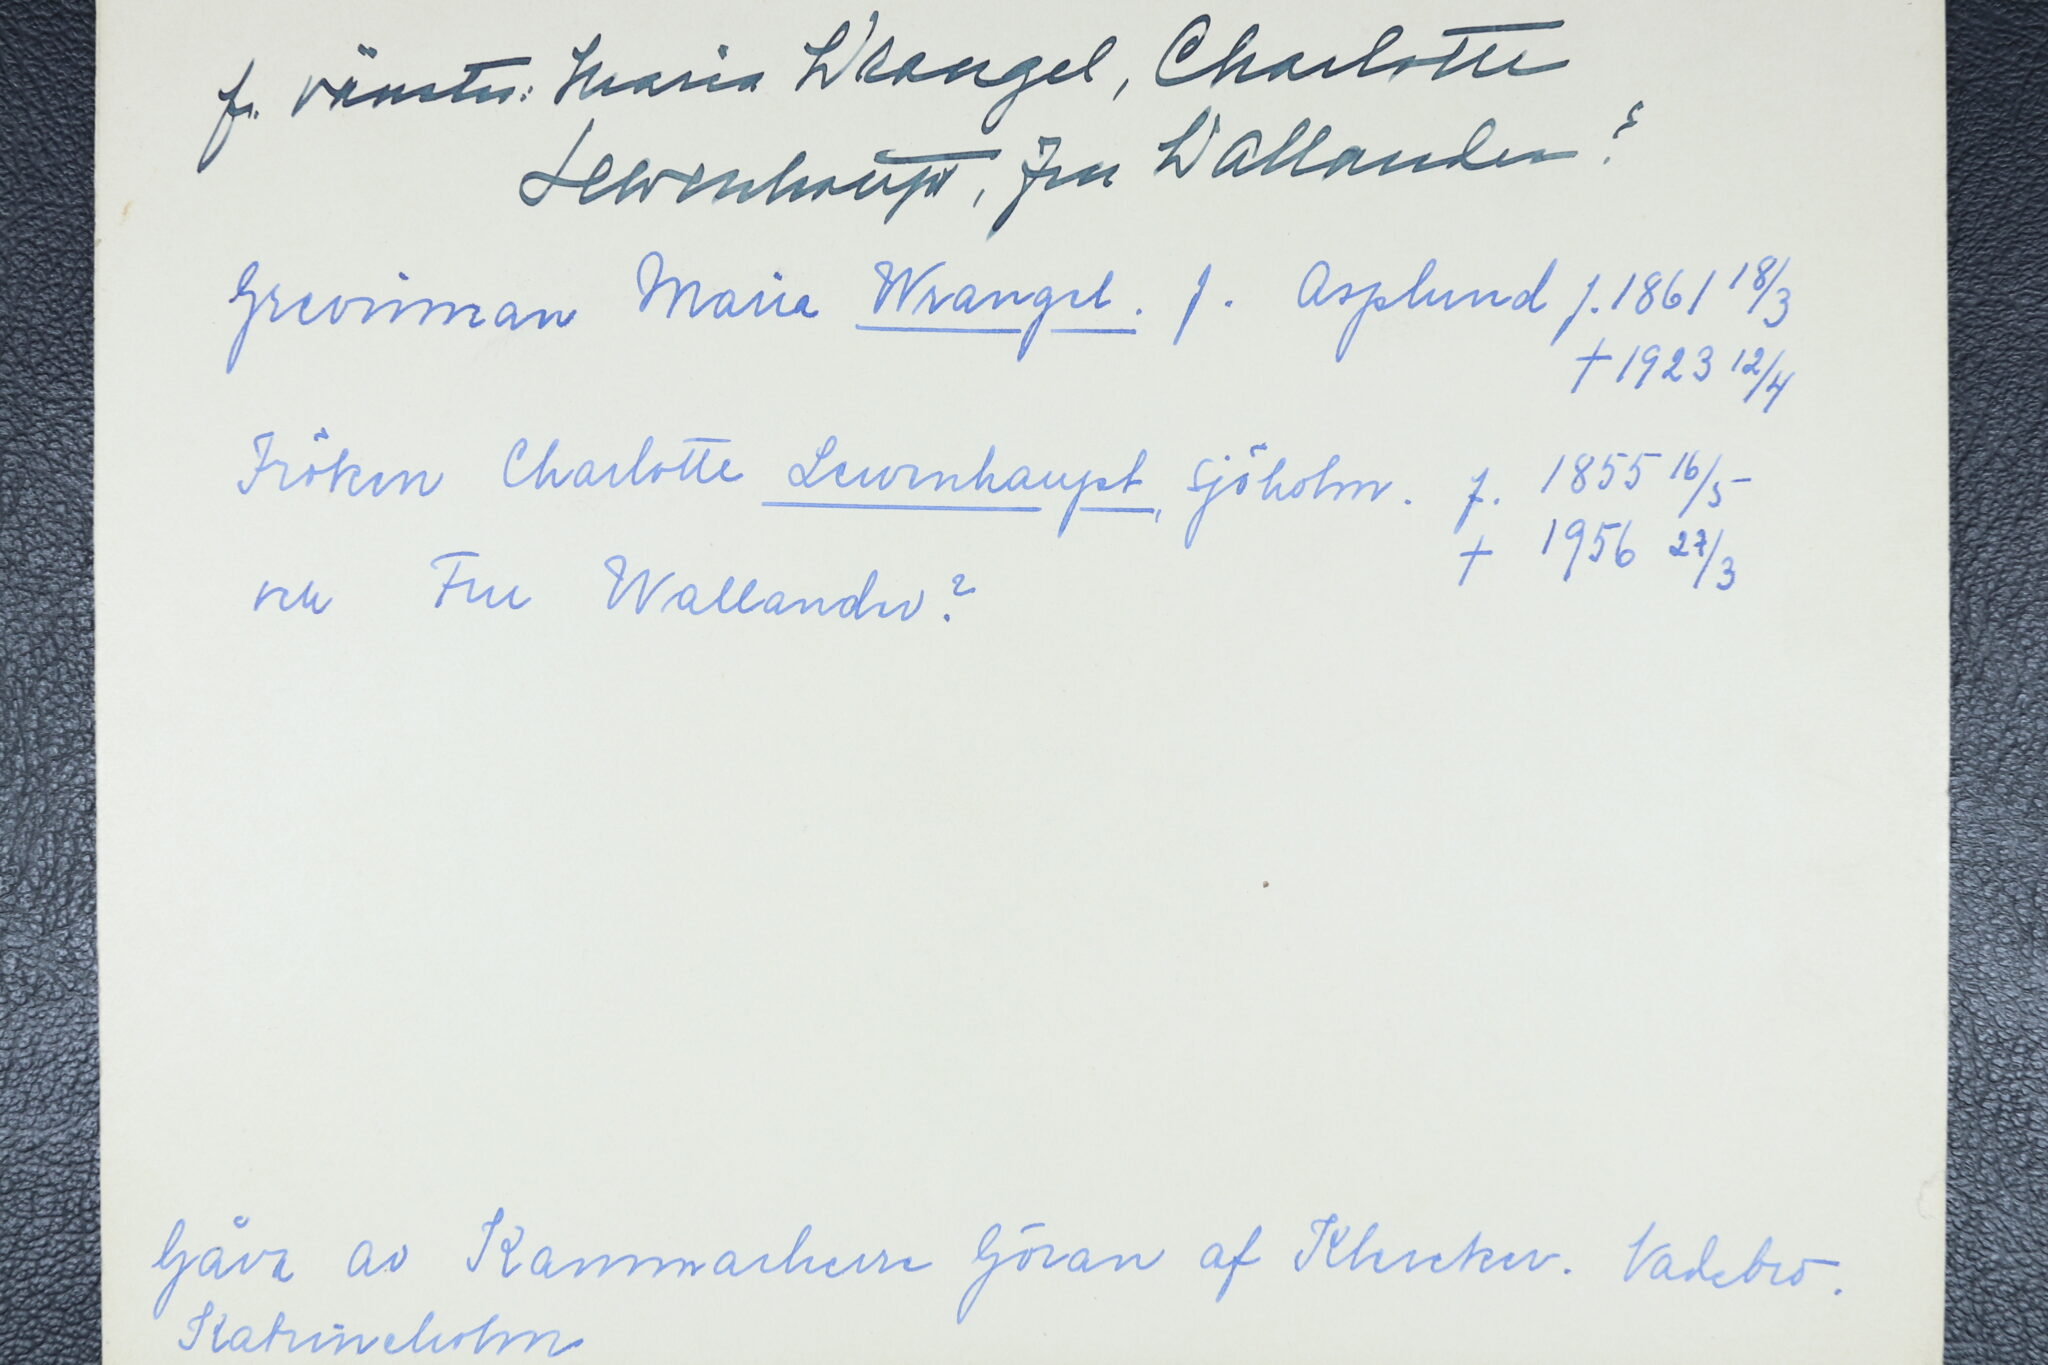 fr. vänster: Maria Wrangel, Charlotte
Lewenhaupt, Fru Wallander?
Grevinnan Maria Wrangel. f. Asplund f. 1861 18/3
† 1923 12/4
Fröken Charlotte Lewenhaupt, Sjöholm. f. 1855 16/5
† 1956 27/3
och Fru Wallander?
Gåva av Kammarherre Göran af Klercker. Vadsbro.
Katrineholm